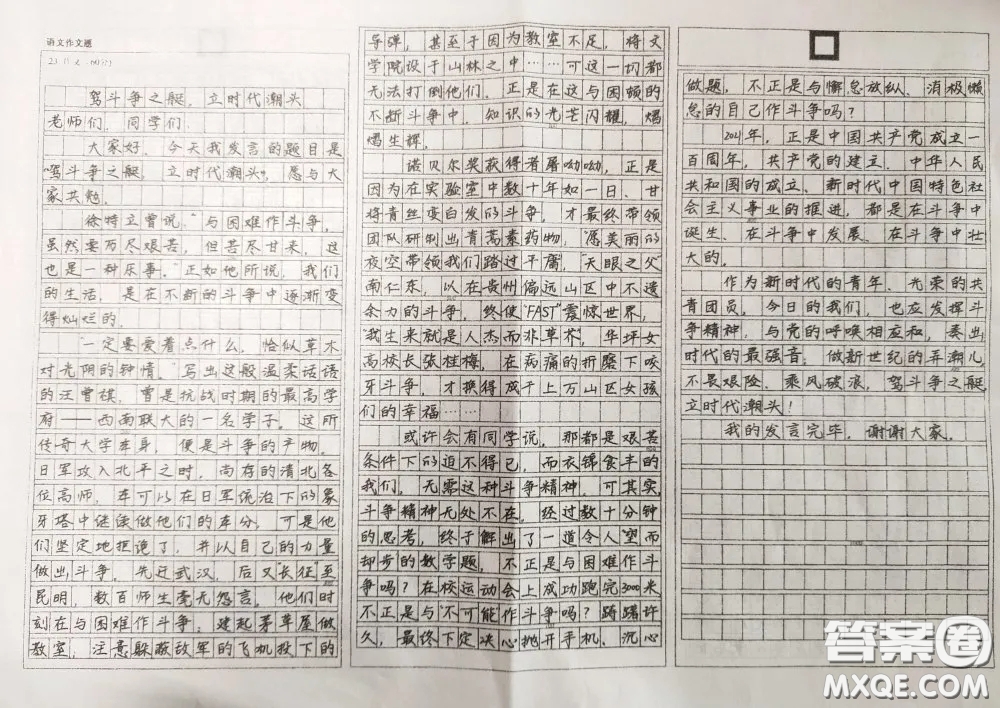 语文作文题
23.作文（60分）
驾斗争之艇，立时代潮头
老师们，同学们：
大家好，今天我发言的题目是
"驾斗争之艇，立时代潮头"，愿与大
家共勉。
徐特立曾说："与困难作斗争，
虽然要历尽艰苦，但苦尽甘来，这
也是一种乐事。"正如他所说，我们
的生活，是在不断的斗争中逐渐变
得灿烂的。
"一定要爱着点什么，恰似草木
对光阴的钟情。"写出这般温柔话语
的汪曾祺，曾是抗战时期的最高学
府——西南联大的一名学子。这所
传奇大学本身，便是斗争的产物。
日军攻入北平之时，尚存的清北各
位高师，本可以在日军统治下的象
牙塔中继续做他们的本分，可是他
们坚定地拒绝了，并以自己的力量
做出斗争。先迁武汉，后又长征至
昆明，数百师生毫无怨言。他们时
刻在与困难作斗争：建起茅草屋做
教室，注意躲蔽敌军的飞机投下的
导弹，甚至于因为教室不足，将文
学院设于山林之中……可这一切都
无法打倒他们。正是在这与困顿的
不断斗争中，知识的光芒闪耀，熠
熠生辉。
诺贝尔奖获得者屠呦呦，正是
因为在实验室中数十年如一日、甘
将青丝变白发的斗争，才最终带领
团队研制出青蒿素药物，"愿美丽的
夜空带领我们踏过平庸，"天眼之父"
南仁东，以在贵州偏远山区中不遗
余力的斗争，终使"FAST"震惊世界，
"我生来就是人杰而非草芥"，华坪女
高校长张桂梅，在病痛的折磨下咬
牙斗争，才换得成千上万山区女孩
们的幸福……
或许会有同学说，那都是艰苦
条件下的迫不得已，而衣锦食丰的
我们，无需这种斗争精神。可其实，
斗争精神无处不在。经过数十分钟
的思考，终于解出了一道令人望而
却步的数学题，不正是与困难作斗
争吗？在校运动会上成功跑完3000米
不正是与"不可能"作斗争吗？踌躇许
久，最终下定决心抛开手机、沉心
做题，不正是与懈怠放纵、消极懒
怠的自己作斗争吗？
2021年，正是中国共产党成立一
百周年，共产党的建立、中华人民
共和国的成立、新时代中国特色社
会主义事业的推进，都是在斗争中
诞生、在斗争中发展、在斗争中壮
大的。
作为新时代的青年、光荣的共
青团员，今日的我们，也应发挥斗
争精神，与党的呼唤相应和，奏出
时代的最强音，做新世纪的弄潮儿，
不畏艰险、乘风破浪，驾斗争之艇，
立时代潮头！
我的发言完毕，谢谢大家。
答案圈
MXQE.COM